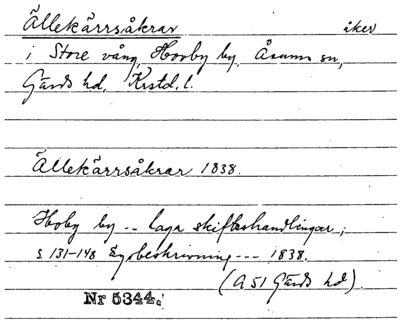 Ällekärrsåkrar åker
i Store vång, Hovby by, Åsums sn,
Gärds hd, Krstd. l.
Ällekärrsåkrar 1838.
Hoby by -- laga skifteshandlingar;
s 131-148 Egobeskrivning --- 1838.
(A 51 Gärds hd).
Nr 5344.